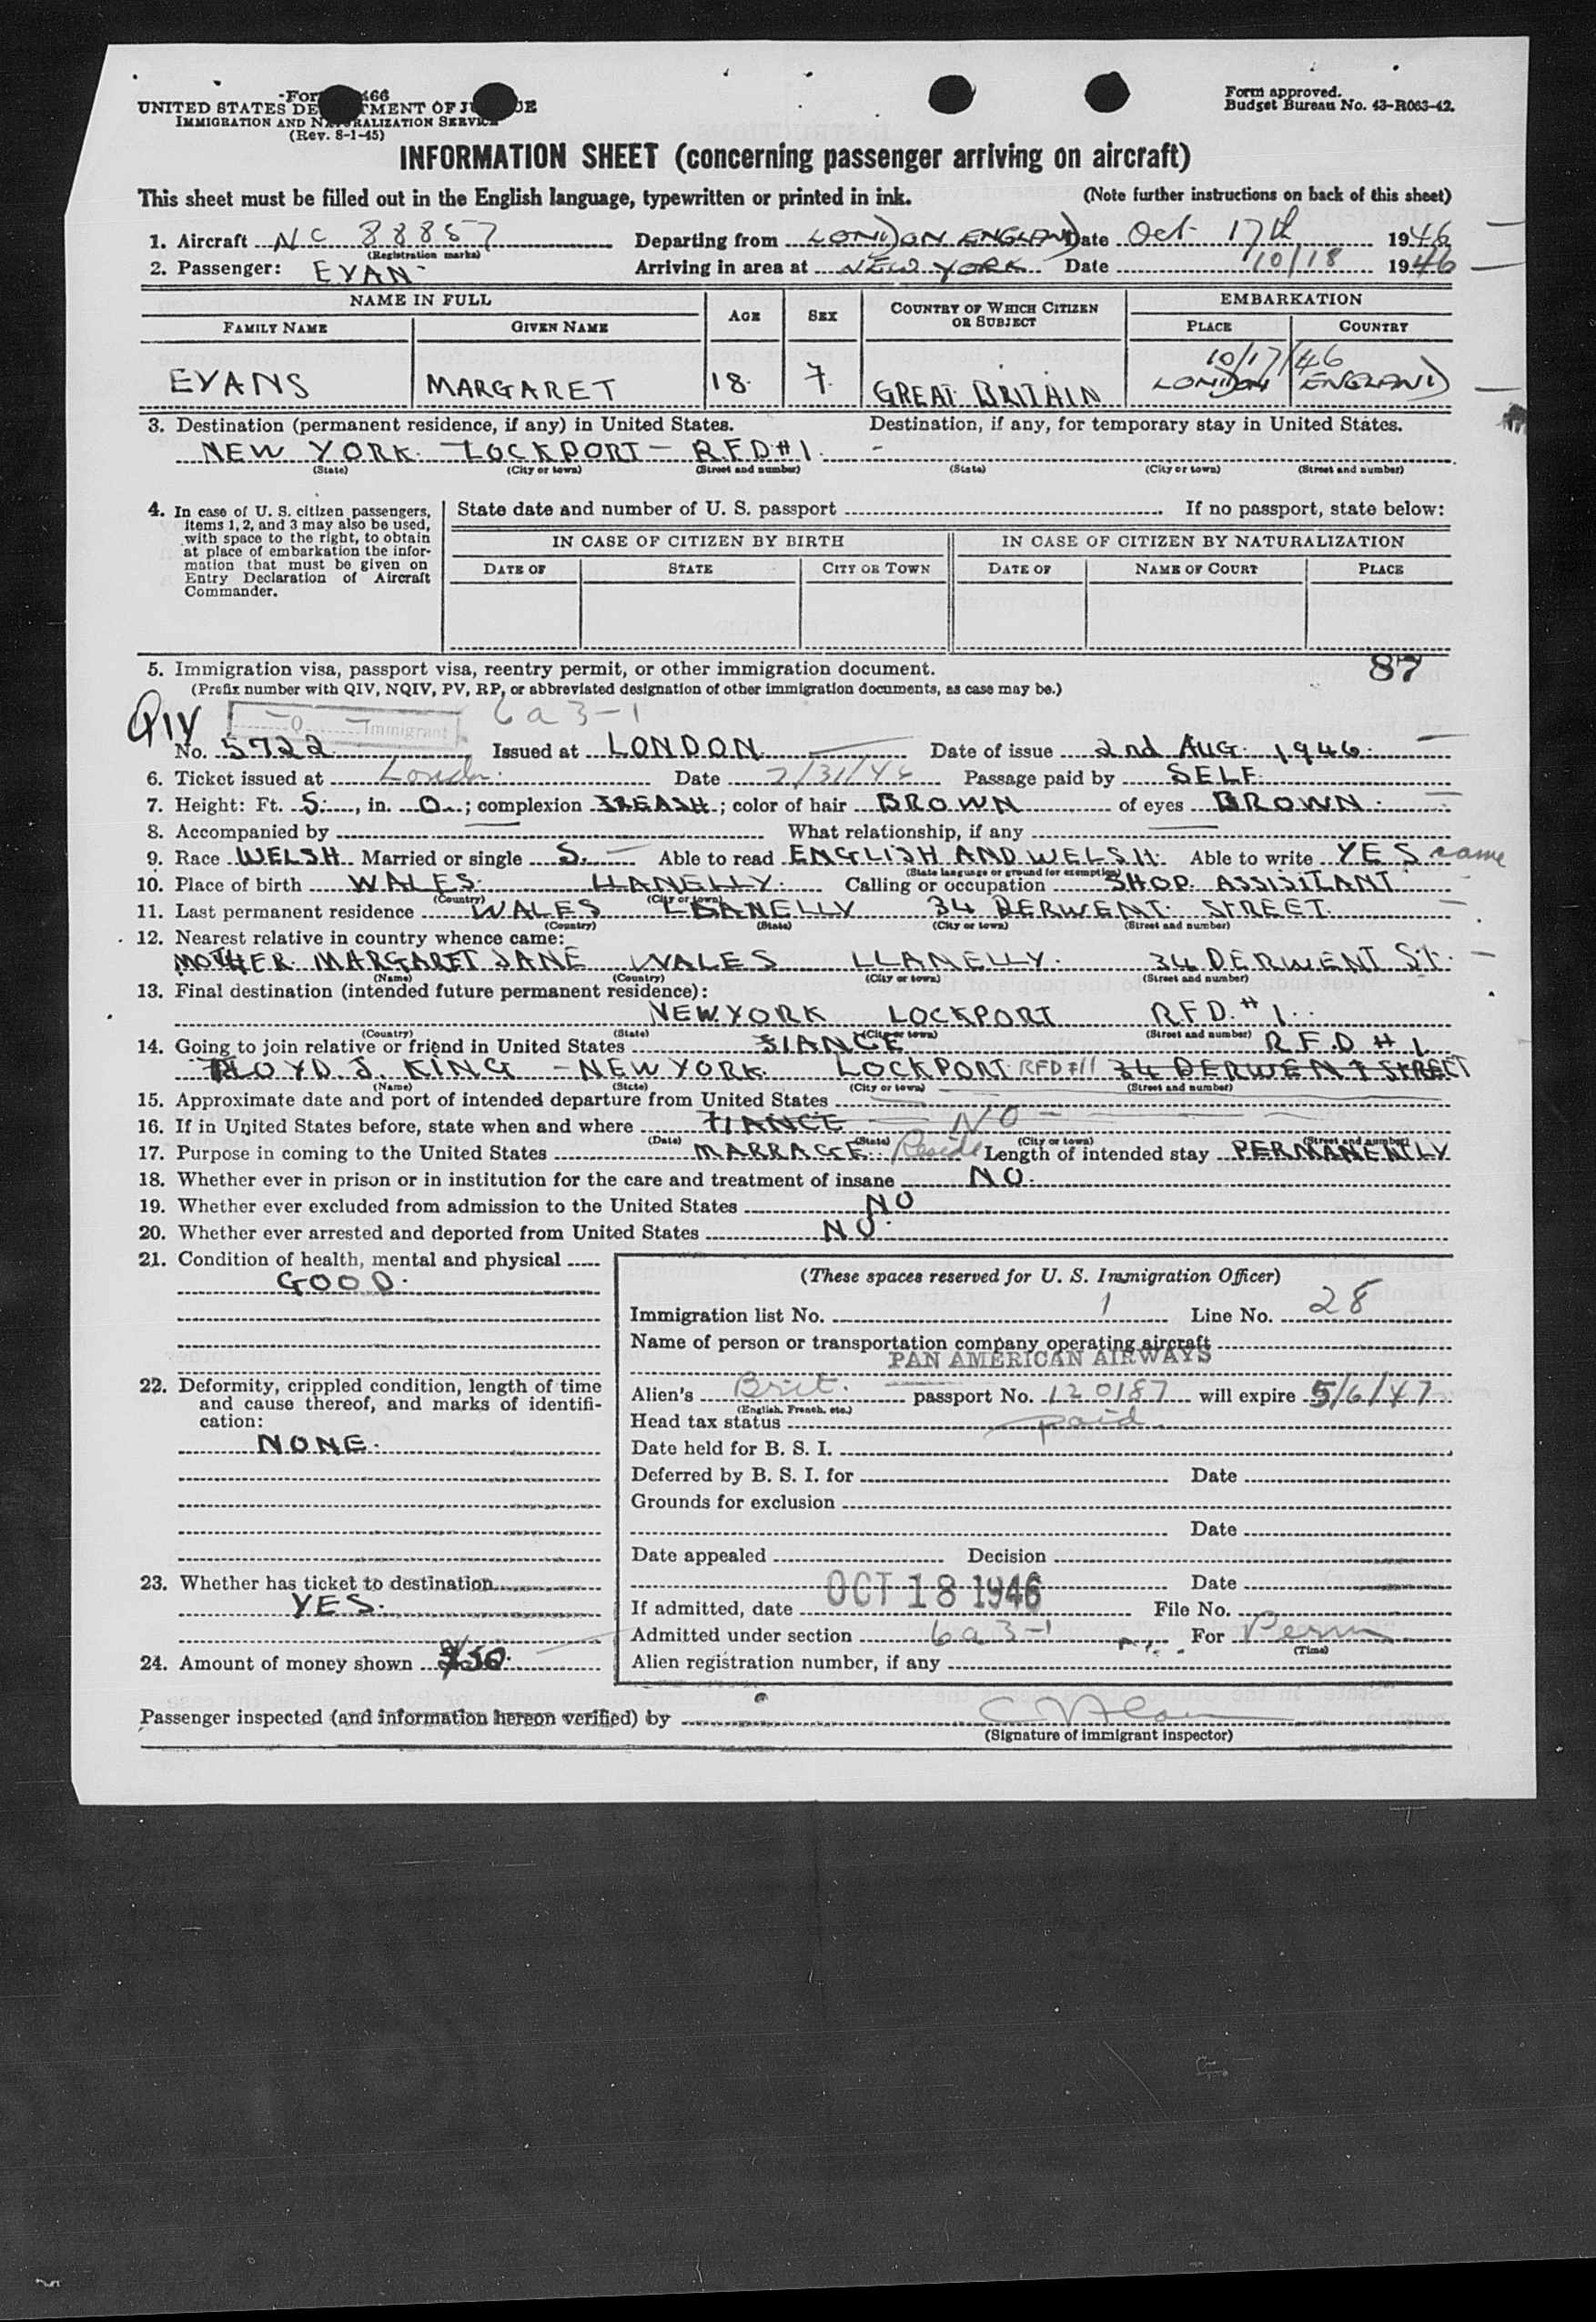 Form 466
UNITED STATES DEPARTMENT OF JUSTICE
IMMIGRATION AND NATURALIZATION SERVICE
(Rev. 8-1-45)
Form approved.
Budget Bureau No. 43-R063-42.
INFORMATION SHEET (concerning passenger arriving on aircraft)
This sheet must be filled out in the English language, typewritten or printed in ink. (Note further instructions on back of this sheet)
1. Aircraft NC 88857 Departing from LONDON ENGLAND Date Oct 17th 1946
(Registration marks)
2. Passenger: EVAN Arriving in area at NEW YORK Date 10/18 1946
NAME IN FULL AGE SEX COUNTRY OF WHICH CITIZEN OR SUBJECT EMBARKATION
FAMILY NAME GIVEN NAME PLACE COUNTRY
10/17/46
EVANS MARGARET 18. F. GREAT BRITAIN LONDON ENGLAND
3. Destination (permanent residence, if any) in United States. Destination, if any, for temporary stay in United States.
NEW YORK. LOCKPORT - R.F.D # 1. -
(State) (City or town) (Street and number) (State) (City or town) (Street and number)
4. In case of U. S. citizen passengers, items 1, 2, and 3 may also be used, with space to the right, to obtain at place of embarkation the information that must be given on Entry Declaration of Aircraft Commander.
State date and number of U. S. passport If no passport, state below:
IN CASE OF CITIZEN BY BIRTH IN CASE OF CITIZEN BY NATURALIZATION
DATE OF STATE CITY OR TOWN DATE OF NAME OF COURT PLACE
87
5. Immigration visa, passport visa, reentry permit, or other immigration document.
(Prefix number with QIV, NQIV, PV, RP, or abbreviated designation of other immigration documents, as case may be.)
QIV Q Immigrant 6a3-1
No. 5722 Issued at LONDON. Date of issue 2nd AUG. 1946.
6. Ticket issued at London Date 7/31/46 Passage paid by SELF.
7. Height: Ft. 5, in. 0; complexion FREASH; color of hair BROWN of eyes BROWN.
8. Accompanied by What relationship, if any
9. Race WELSH Married or single S. Able to read ENGLISH AND WELSH. Able to write YES same
(State language or ground for exemption)
10. Place of birth WALES. LLANELLY. Calling or occupation SHOP. ASSISITANT
(Country) (City or town)
11. Last permanent residence WALES LLANELLY 34 DERWENT. STREET.
(Country) (State) (City or town) (Street and number)
12. Nearest relative in country whence came:
MOTHER MARGARET JANE WALES LLANELLY. 34 DERWENT St.
(Name) (Country) (City or town) (Street and number)
13. Final destination (intended future permanent residence):
NEW YORK LOCKPORT R.F.D. # 1.
(Country) (State) (City or town) (Street and number)
14. Going to join relative or friend in United States FIANCE R.F.D # 1
FLOYD J. KING - NEW YORK. LOCKPORT RFD #1 34 DERWENT STREET
(Name) (State) (City or town) (Street and number)
15. Approximate date and port of intended departure from United States
16. If in United States before, state when and where FIANCE NO
(Date) (State) (City or town) (Street and number)
17. Purpose in coming to the United States MARRAGE. Reside Length of intended stay PERMANENTLY
18. Whether ever in prison or in institution for the care and treatment of insane NO.
19. Whether ever excluded from admission to the United States NO
20. Whether ever arrested and deported from United States NO.
21. Condition of health, mental and physical
GOOD.
22. Deformity, crippled condition, length of time and cause thereof, and marks of identification:
NONE.
23. Whether has ticket to destination
YES.
24. Amount of money shown 50.
(These spaces reserved for U. S. Immigration Officer)
Immigration list No. 1 Line No. 28
Name of person or transportation company operating aircraft
PAN AMERICAN AIRWAYS
Alien's Brit. passport No. 120187 will expire 5/6/47
(English, French, etc.)
Head tax status paid
Date held for B. S. I.
Deferred by B. S. I. for Date
Grounds for exclusion
Date
Date appealed Decision
Date
If admitted, date OCT 18 1946 File No.
Admitted under section 6a3-1 For Perm
(Time)
Alien registration number, if any
Passenger inspected (and information hereon verified) by
(Signature of immigrant inspector)